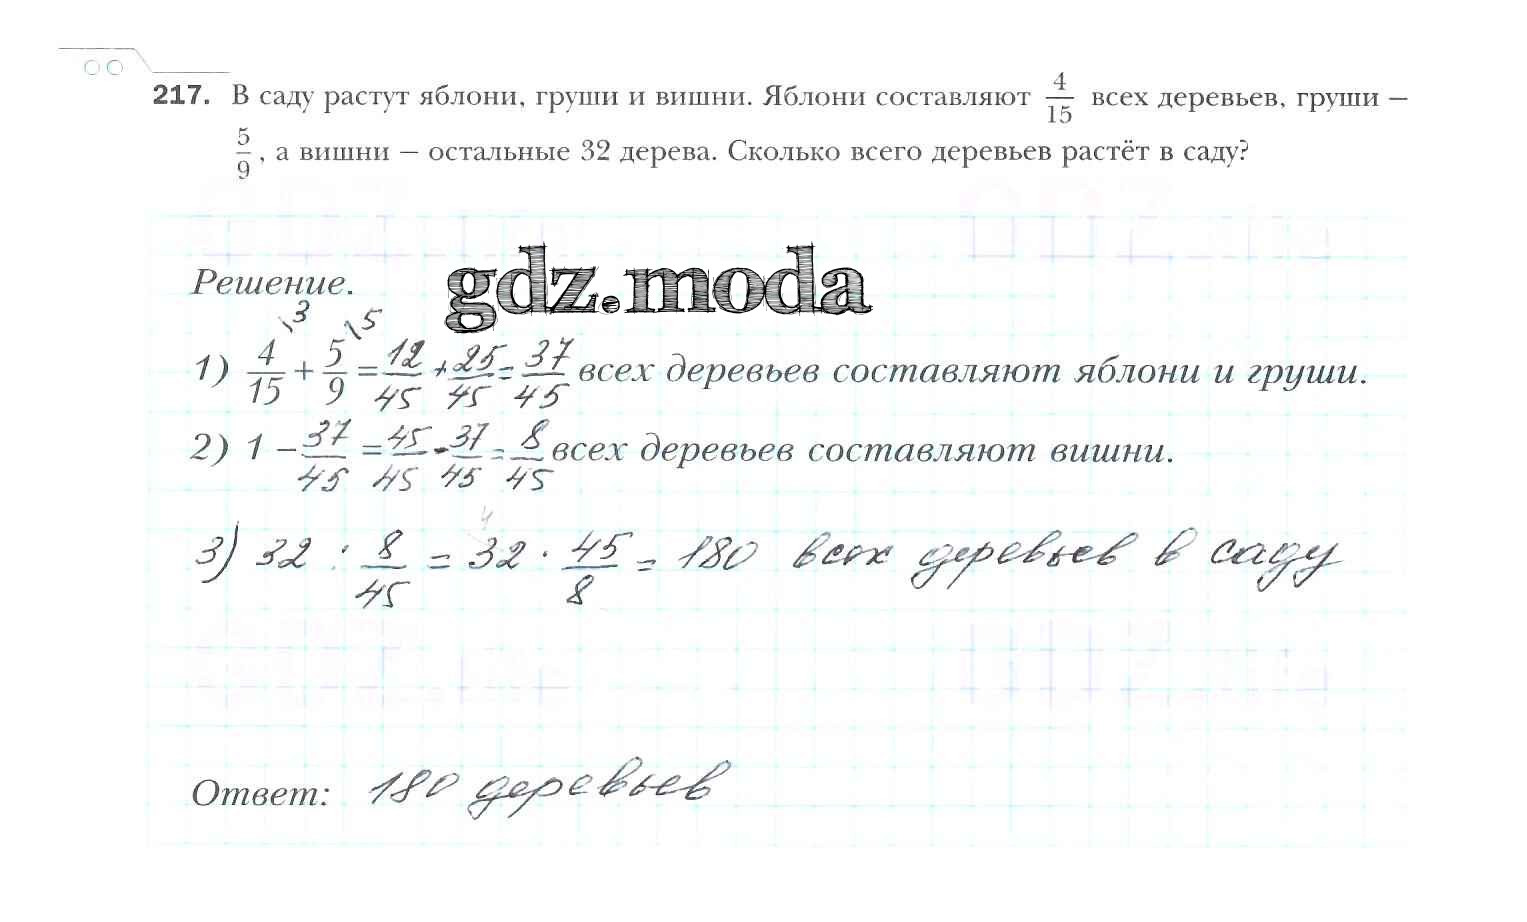 217. В саду растут яблони, груши и вишни. Яблони составляют 4/15 всех деревьев, груши –
5/9, а вишни – остальные 32 дерева. Сколько всего деревьев растёт в саду?
Решение.
gdz.moda
1) 4\3/15 + 5\5/9 = 12/45 + 25/45 = 37/45 всех деревьев составляют яблони и груши.
2) 1 – 37/45 = 45/45 - 37/45 = 8/45 всех деревьев составляют вишни.
4
3) 32 : 8/45 = 32 · 45/8 = 180 всех деревьев в саду
Ответ: 180 деревьев